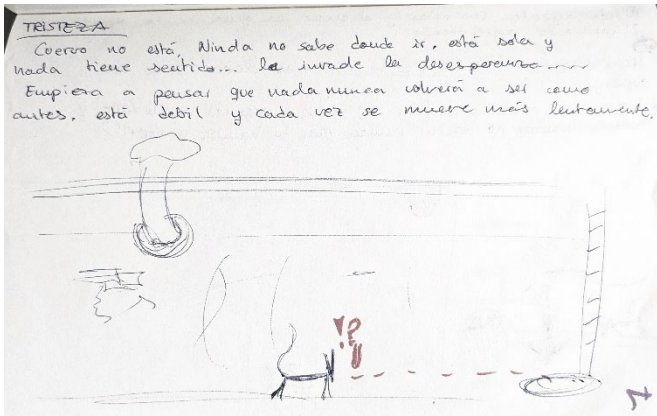 TRISTEZA
Cuervo no está, Ninda no sabe donde ir, está sola y
nada tiene sentido... la invade la desesperanza
Empieza a pensar que nada nunca volverá a ser como
antes, está debil y cada vez se mueve más lentamente.
!?